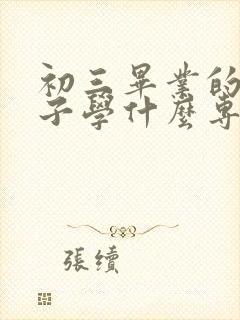 初三畢業的
子學什麼專
張續